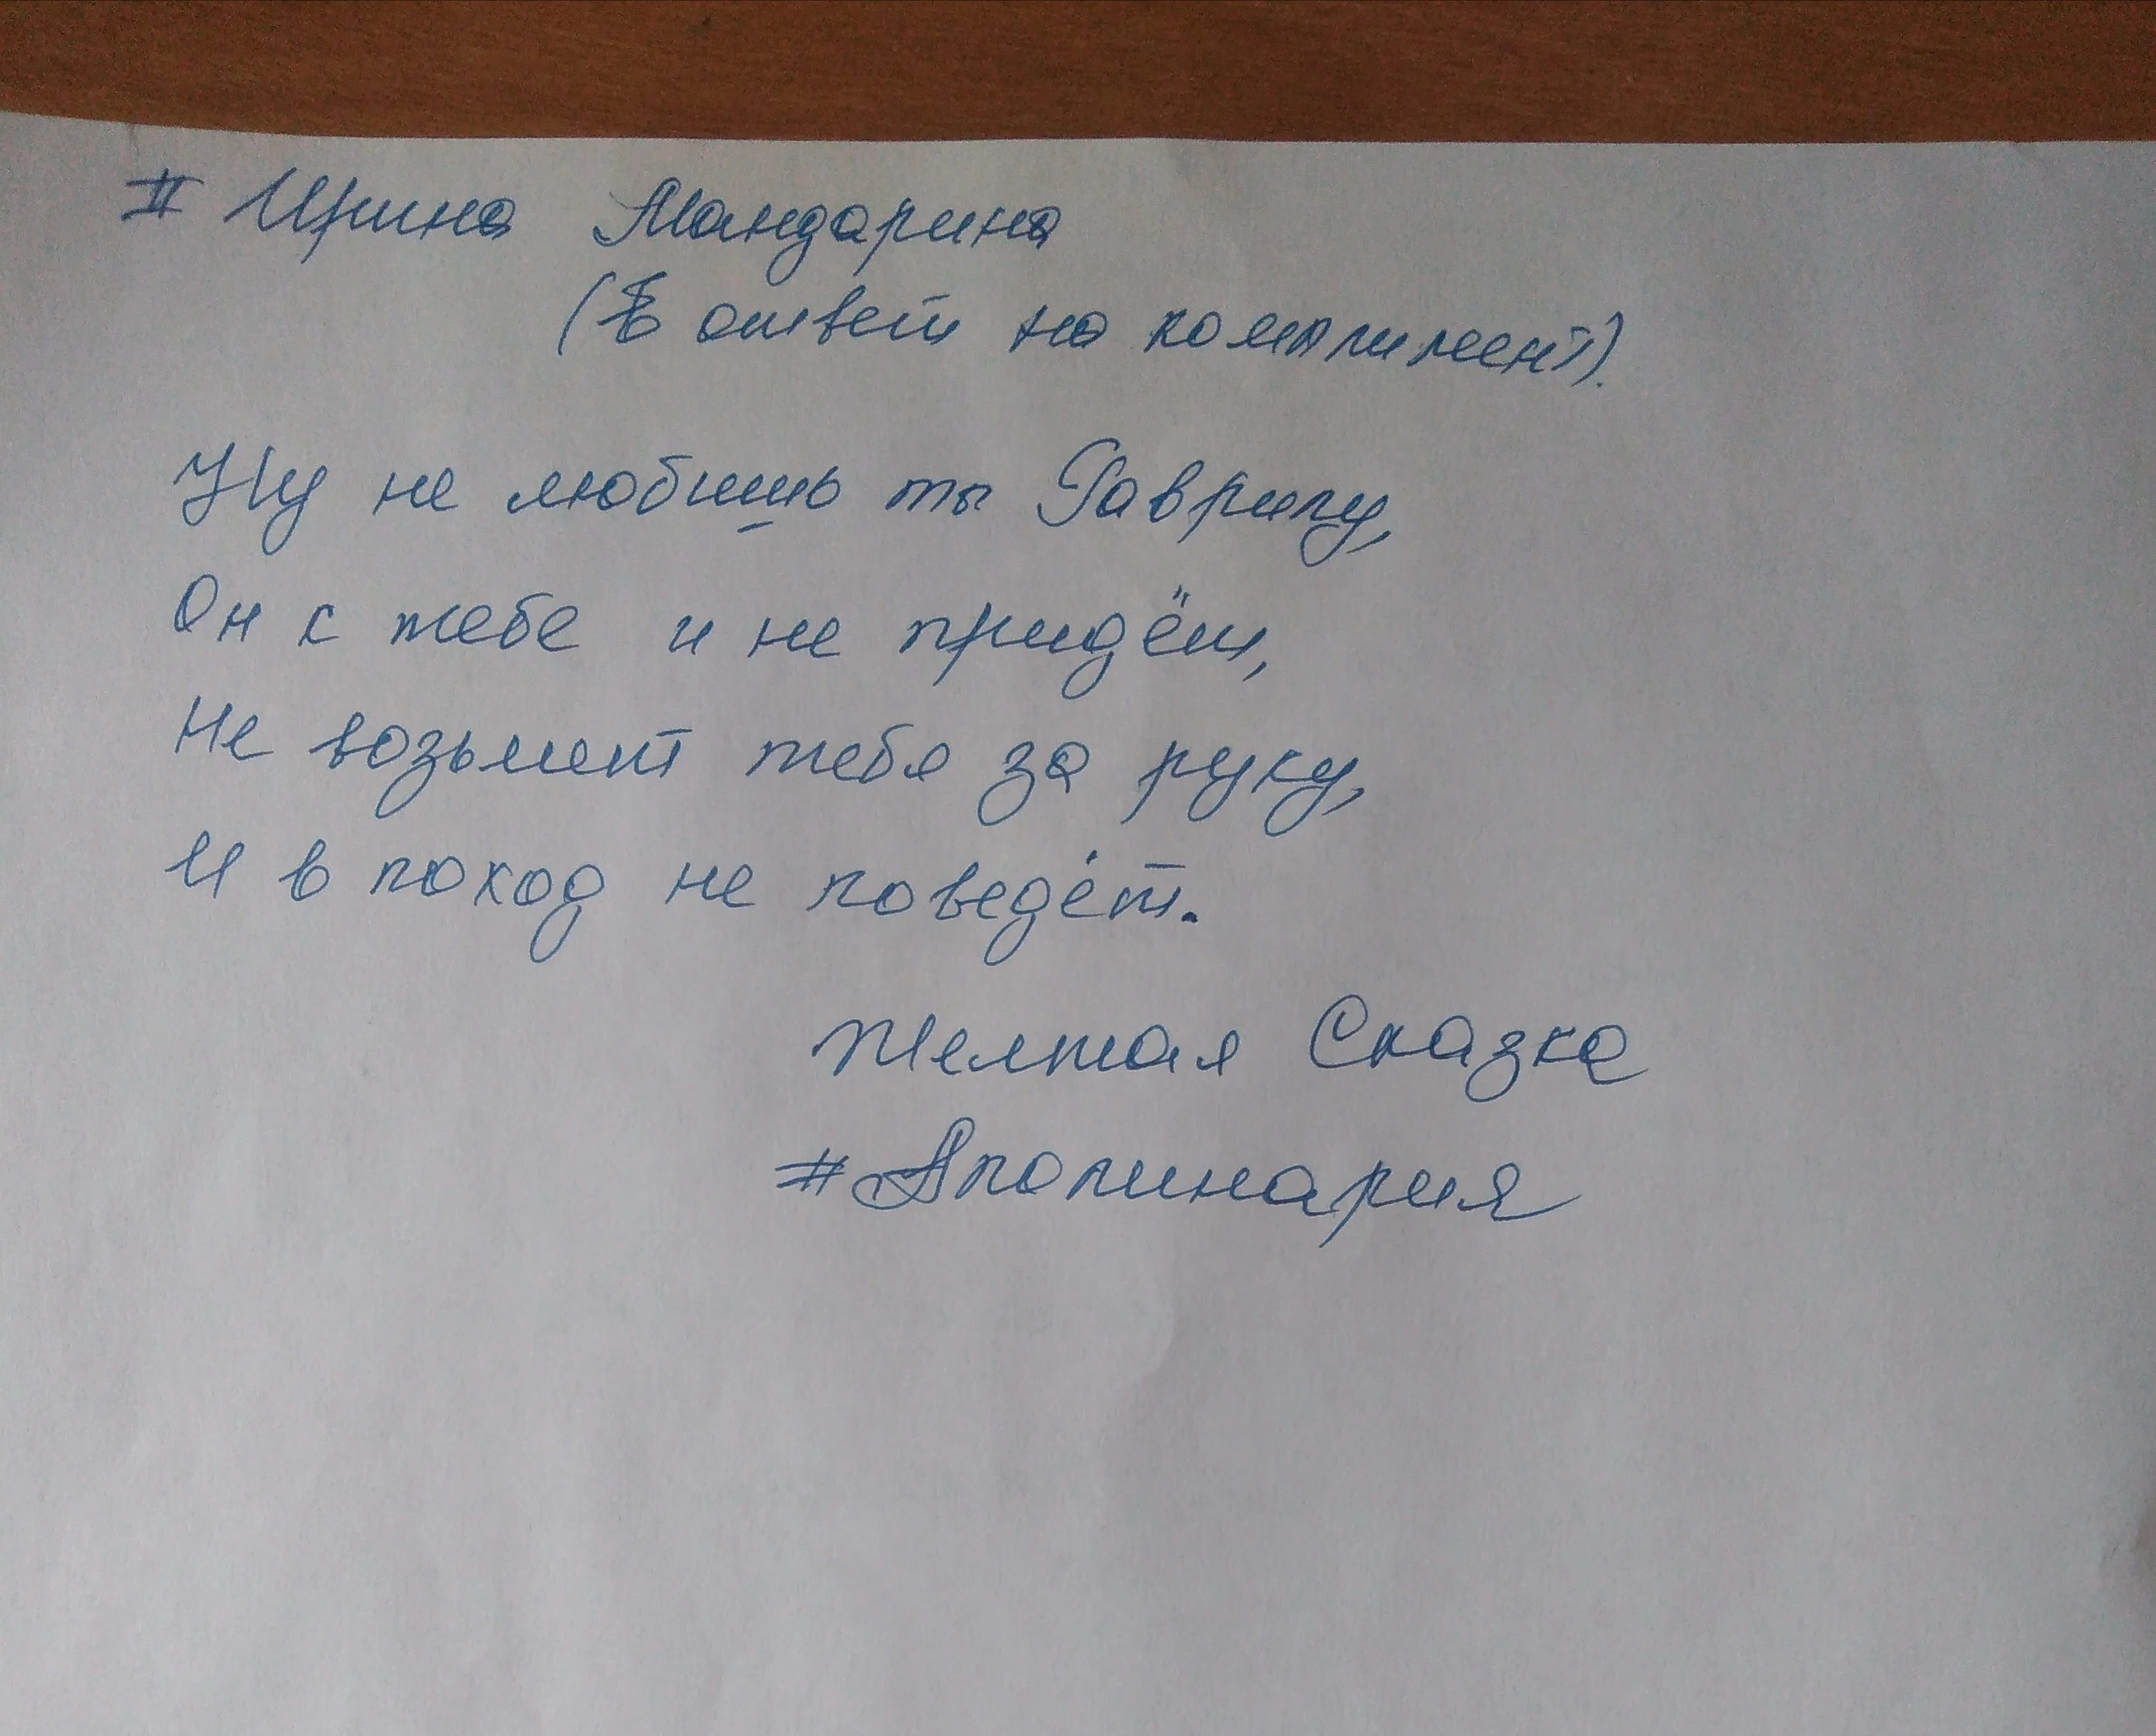 # Ирина Мандарина
(В ответ на комплимент).
Ну не любишь ты Гаврилу,
Он к тебе и не придёт,
Не возьмёт тебя за руку,
И в поход не поведёт.
Желтая Сказка
#Аполинария